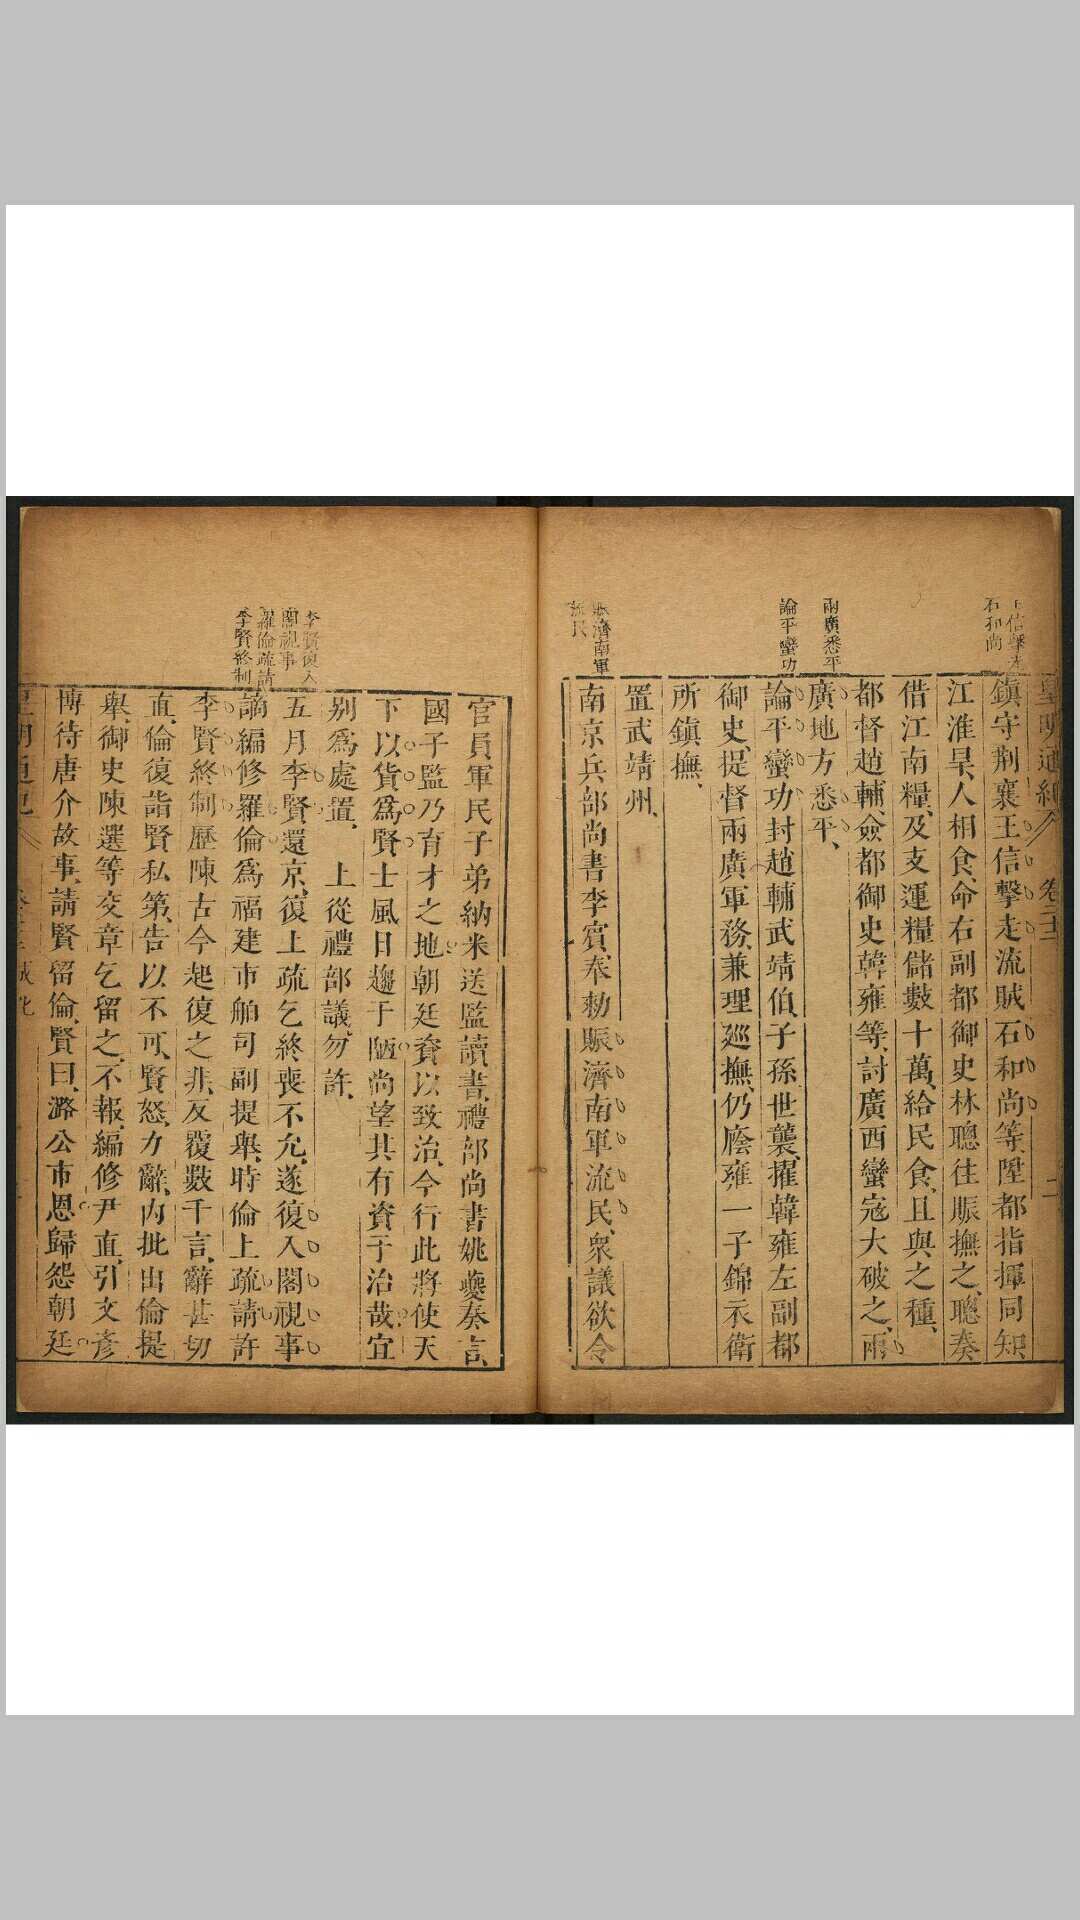 皇明通紀 卷二十二 二
石和尚
鎮守荆襄王信擊走流賊石和尚等、陞都指揮同知
江淮旱、人相食、命右副都御史林聰往賑撫之、聰奏
借江南糧、及支運糧儲數十萬、給民食、且與之種、
都督趙輔、僉都御史韓雍等、討廣西蠻寇大破之、兩
兩廣悉平
廣地方悉平、
論平蠻功
論平蠻功、封趙輔武靖伯、子孫世襲、擢韓雍左副都
御史、提督兩廣軍務、兼理廵撫、仍廕雍一子錦衣衛
所鎮撫、
置武靖州、
賑濟南軍
流民
南京兵部尚書李賓、奉勅賑濟南軍流民、衆議欲令
官員軍民子弟納米送監讀書、禮部尚書姚夔奏言、
國子監乃育才之地、朝廷資以致治、今行此將使天
下以貨爲賢、士風日趨于陋、尚望其有資于治哉、宜
别爲處置、 上從禮部議、勿許、
李賢復入
閣視事
五月李賢還京、復上疏乞終喪不允、遂復入閣視事
羅倫疏請
李賢終制
謫編修羅倫爲福建市舶司副提舉、時倫上疏請許
李賢終制、歷陳古今起復之非、反覆數千言、辭甚切
直、倫復詣賢私第、告以不可、賢怒、力辭、内批出倫提
舉、御史陳選等交章乞留之、不報、編修尹直、引文彦
博待唐介故事、請賢留倫、賢曰、潞公市恩歸怨朝廷